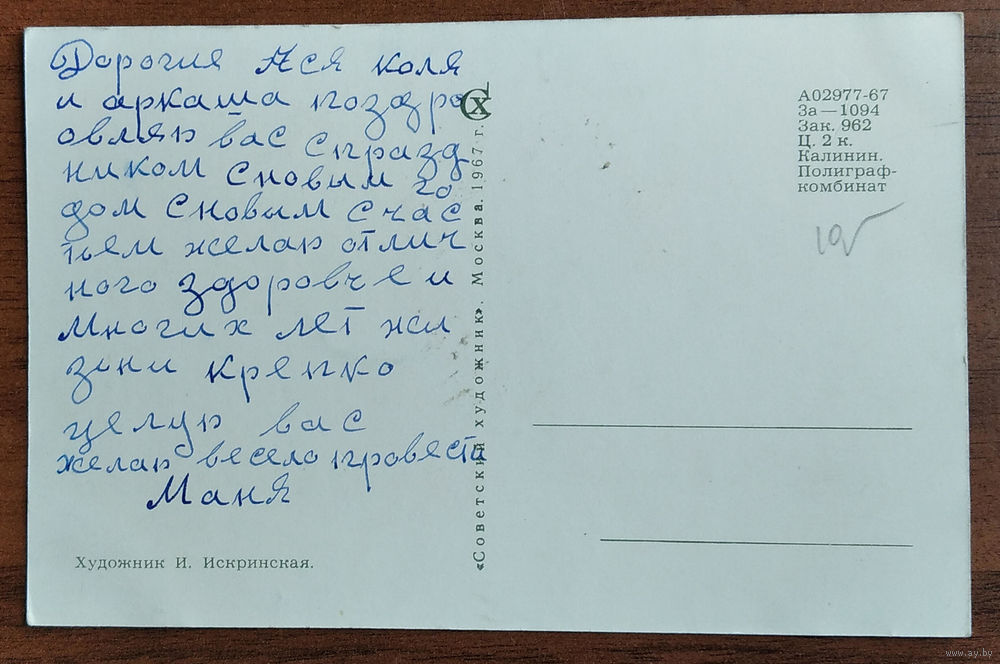 Дорогия Ася коля
и аркаша поздро
овляю вас с празд
ником с новым го
дом с новым счас
тьем желаю отлич
ного здоровье и
многих лет жи
зни крепко
целую вас
желаю весело провести
Маня
Художник И. Искринская.
«Советский художник». Москва. 1967 г.
СХ
А02977-67
За — 1094
Зак. 962
Ц. 2 к.
Калинин.
Полиграф-
комбинат
www.ay.by